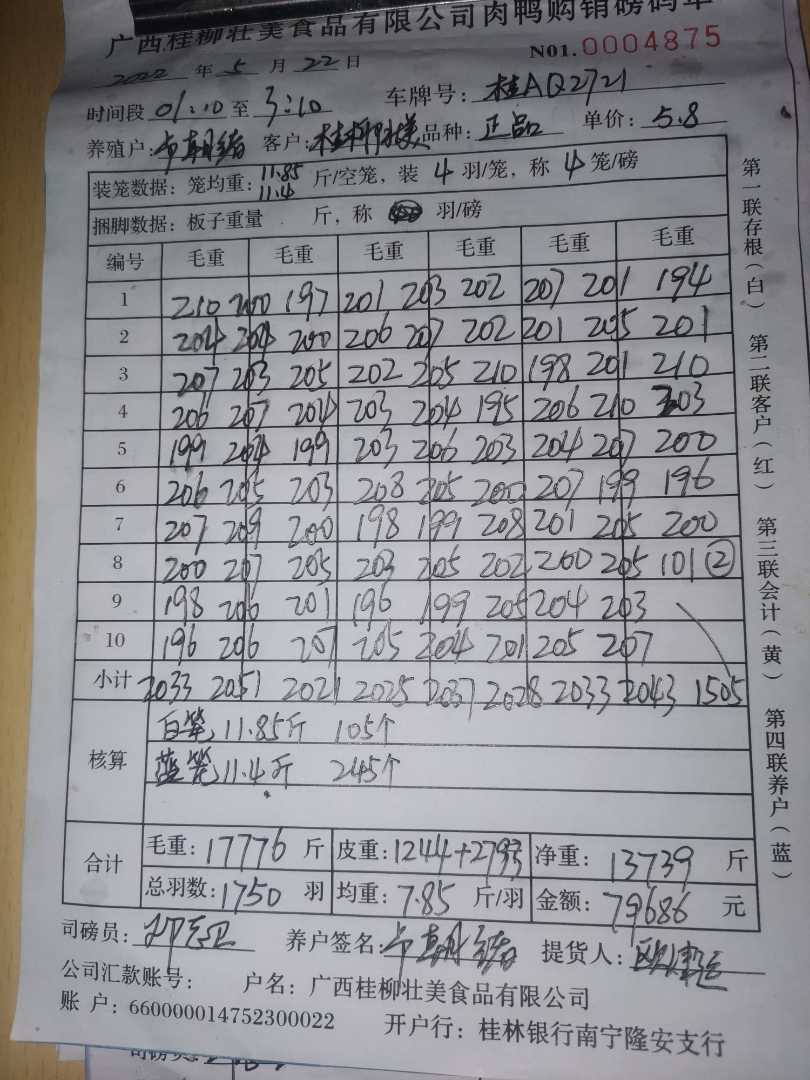 广西桂柳壮美食品有限公司肉鸭购销磅码单
NO1.0004875
2022 年 5 月 22 日
时间段 01:10 至 3:10 车牌号: 桂AQ2721
养殖户: 客户: 桂柳壮美 品种: 正品 单价: 5.8
装笼数据: 笼均重: 11.85 11.4 斤/空笼, 装 4 羽/笼, 称 4 笼/磅
捆脚数据: 板子重量 斤, 称 羽/磅
编号 毛重 毛重 毛重 毛重 毛重 毛重
1 210 200 197 201 203 202 207 201 194
2 204 204 200 206 207 202 201 205 201
3 207 203 205 202 205 210 198 201 210
4 206 207 204 203 204 195 206 210 203
5 199 204 199 203 206 203 204 207 200
6 206 205 203 208 205 200 207 199 196
7 207 209 200 198 199 208 201 205 200
8 200 207 205 203 205 202 200 205 101 ②
9 198 206 201 196 199 205 204 203
10 196 206 207 205 204 201 205 207
小计 2033 2051 2021 2025 2037 2028 2033 2043 1505
核算
白笼 11.85斤 105个
蓝笼 11.4斤 245个
合计
毛重: 17776 斤 皮重: 1244+2793 净重: 13739 斤
总羽数: 1750 羽 均重: 7.85 斤/羽 金额: 79686 元
司磅员: 养户签名: 提货人:
公司汇款账号: 户名: 广西桂柳壮美食品有限公司
账 户: 660000014752300022 开户行: 桂林银行南宁隆安支行
第一联存根(白) 第二联客户(红) 第三联会计(黄) 第四联养户(蓝)